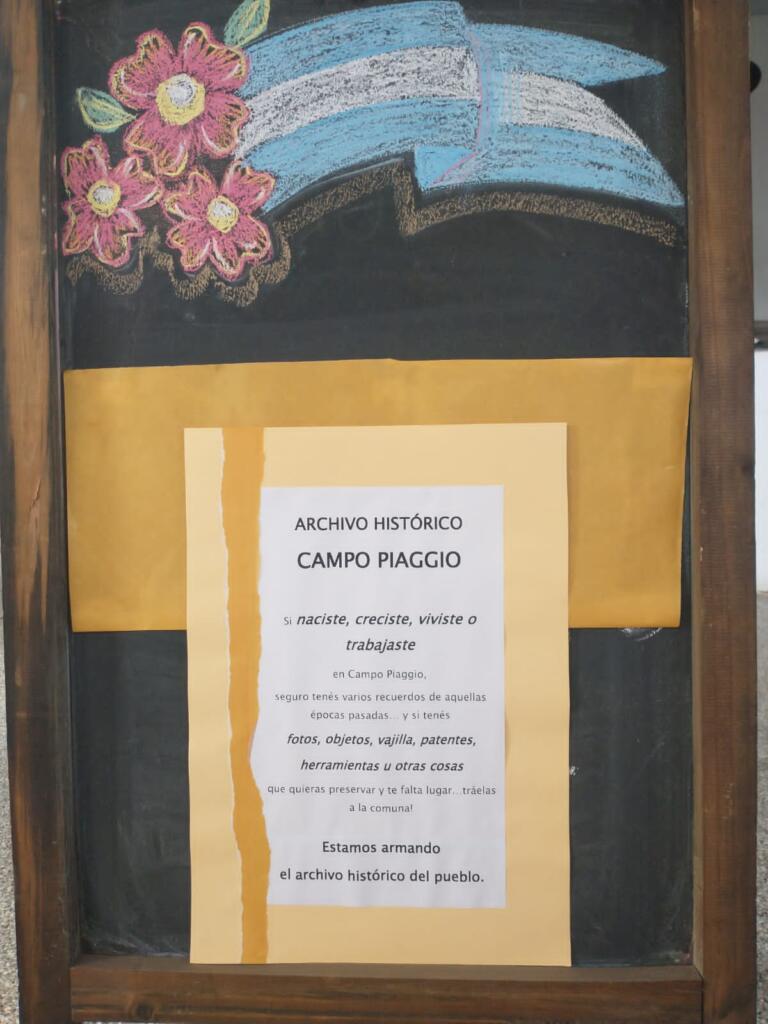 ARCHIVO HISTÓRICO
CAMPO PIAGGIO
Si naciste, creciste, viviste o
trabajaste
en Campo Piaggio,
seguro tenés varios recuerdos de aquellas
épocas pasadas... y si tenés
fotos, objetos, vajilla, patentes,
herramientas u otras cosas
que quieras preservar y te falta lugar...tráelas
a la comuna!
Estamos armando
el archivo histórico del pueblo.